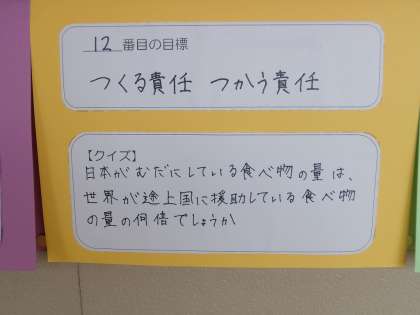 12 番目の目標
つくる責任 つかう責任
【クイズ】
日本がむだにしている食べ物の量は、
世界が途上国に援助している食べ物
の量の何倍でしょうか